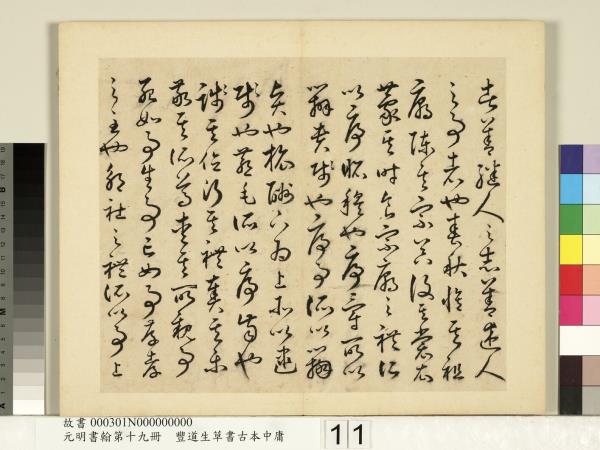 者善繼人之志善述人
之事者也春秋脩其祖
廟陳其宗器設其裳衣
薦其時食宗廟之禮所
以序昭穆也序爵所以
辨貴賤也序事所以辨
賢也旅酬下為上所以逮
賤也燕毛所以序齒也
踐其位行其禮奏其樂
敬其所尊愛其所親事
死如事生事亡如事存孝
之至也郊社之禮所以事上
故書 000301N000000000
元明書翰第十九冊 豐道生草書古本中庸
11